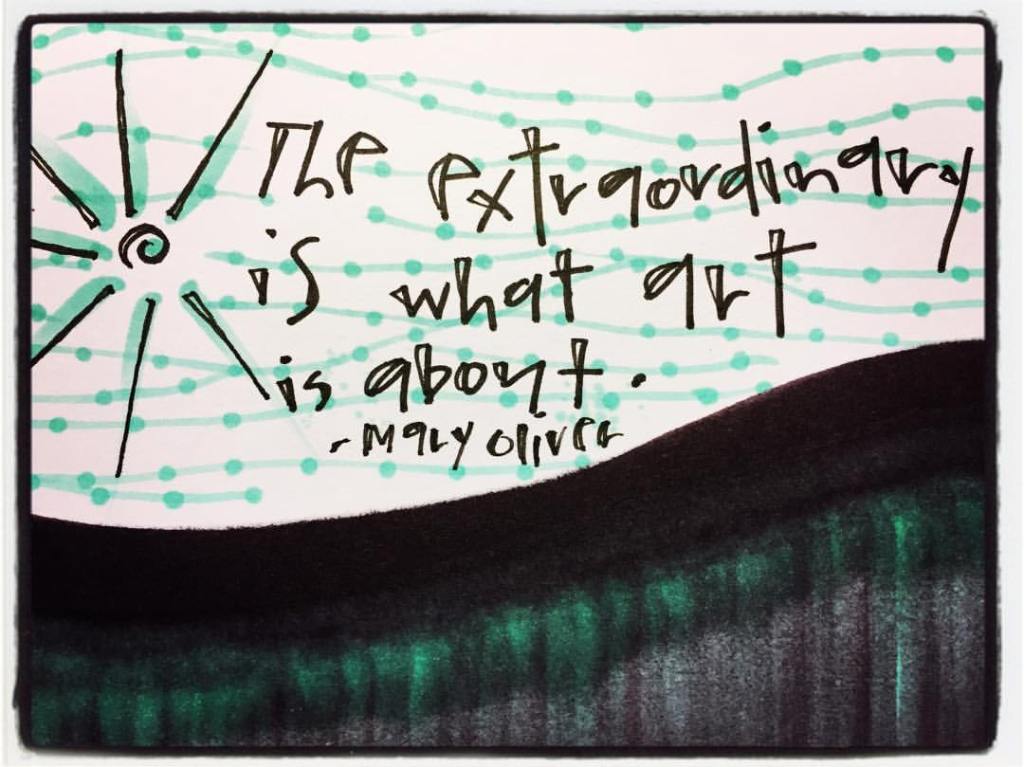 The extraordinary
is what art
is about.
- Mary Oliver